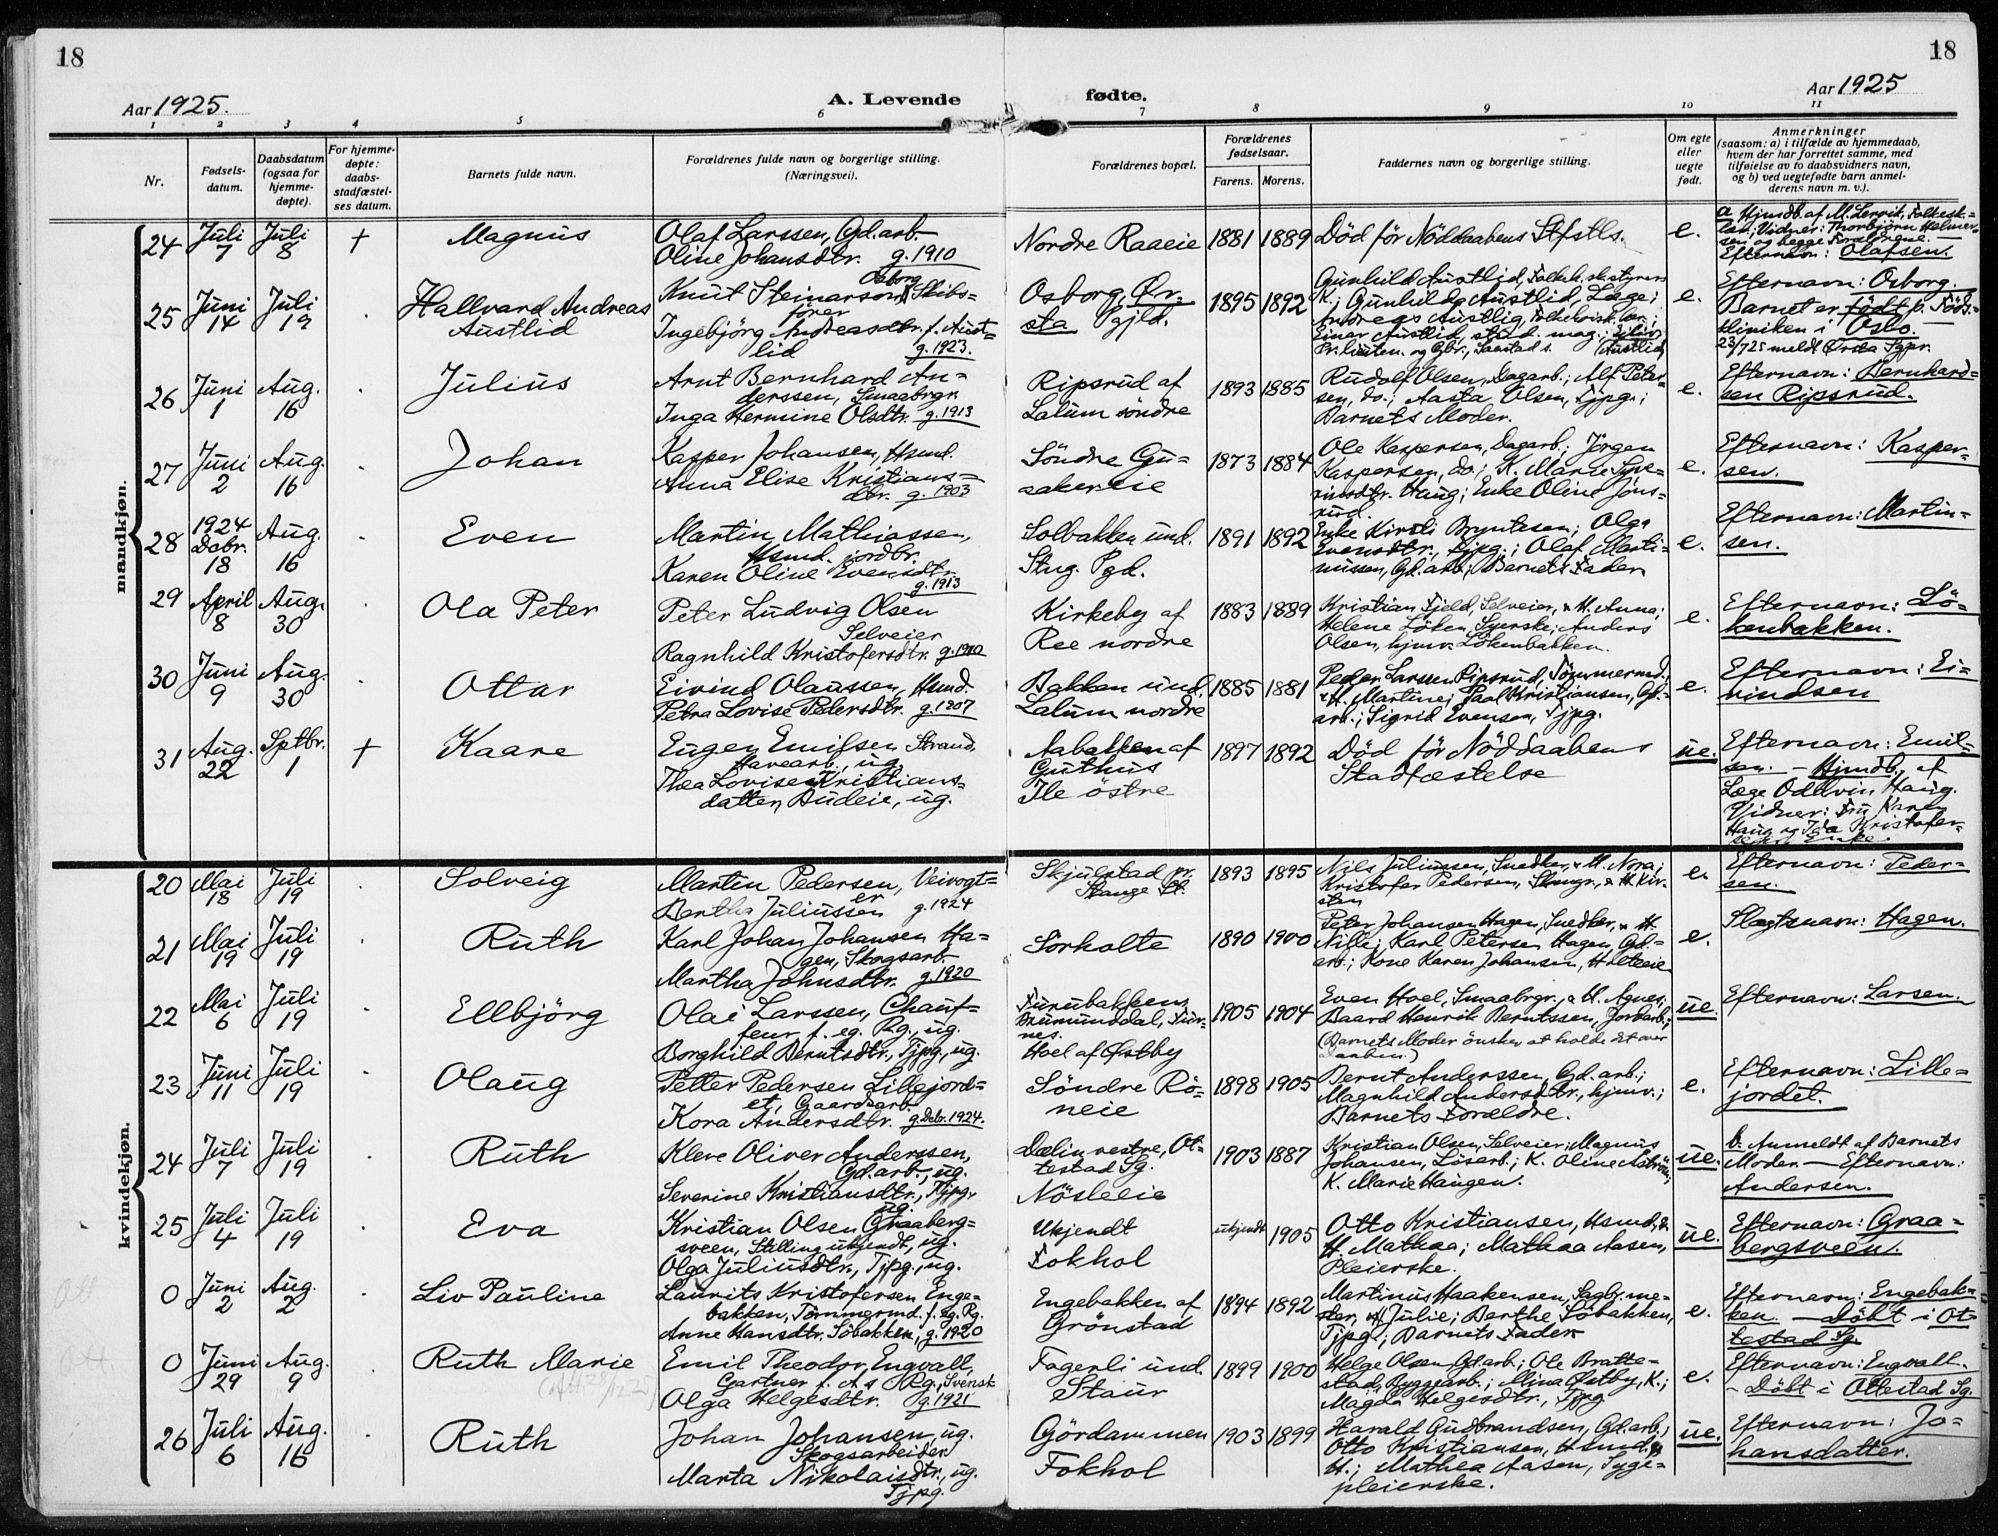 18
18
Aar 1925.
A. Levende
fødte.
Aar 1925
1 2 3 4 5 6 7 8 9 10 11
Nr.
Fødsels-
datum.
Daabsdatum
(ogsaa for
hjemme-
døpte).
For hjemme-
døpte:
daabs-
stadfæstel-
ses datum.
Barnets fulde navn.
Forældrenes fulde navn og borgerlige stilling.
(Næringsvei).
Forældrenes bopæl.
Forældrenes
fødselsaar.
Farens. Morens.
Faddernes navn og borgerlige stilling.
Om egte
eller
uegte
født.
Anmerkninger
(saasom: a) i tilfælde av hjemmedaab,
hvem der har forrettet samme, med
tilføielse av to daabsvidners navn,
og b) ved uegtefødte barn anmel-
derens navn m. v.).
mandkjøn.
24
Juli
7
Juli
8
+
Magnus
Olaf Larssen, Gd.arb.
Oline Johansdtr. g. 1910
Nordre Raaeie
1881
1889
Død før Nöddaabens Stfstls.
e.
a Hjmdb. af M. Lervik, Folkesk.=
lær. Vidner: Thorbjørn Helmer-
sen og begge Forældrene. —
Efternavn: Olafsen.
25
Juni
14
Juli
19
Hallvard Andreas
Austlid
Knut Steinarson Osborg, Skibs=
fører
Ingebjörg Andreasdtr. f. Aust=
lid g. 1923.
Osborg, Ør-
sta Pgjld.
1895
1892
Gunhild Austlid, Folkeh.skstyrers
K.; Gunhild Austlid, Læge;
Andreas Austlig, Folkehøisk.lær.;
Einar Austlid, stud. mag.; Eiliv
Pr.løitn. og Gbr., Samstad s. (Austlid)
e.
Efternavn: Osborg.
Barnet er født p. Föds.=
kliniken i Oslo.
23/7 25 meldt Ørsta Sgpr.
26
Juni
1
Aug.
16
Julius
Arnt Bernhard An=
derssen, Smaabrgr.
Inga Hermine Olsdtr. g. 1913
Ripsrud af
Lalum söndre
1893
1885
Rudolf Olsen, Dagarb.; Alf Peter-
sen, do.; Aasta Olsen, Tjpg.;
Barnets Moder.
e.
Efternavn: Bernhard=
sen Ripsrud.
27
Juni
2
Aug.
16
Johan
Kasper Johansen, Hsmd.
Anna Elise Kristians=
dtr. g. 1903
Söndre Gu=
sakereie
1873
1884
Ole Kaspersen, Dagarb.; Jørgen
Kaspersen, do.; K. Marie Syve-
rinsdtr. Haug; Enke Oline Jöns-
rud.
e.
Efternavn: Kasper=
sen.
28
1924
Dcbr.
18
Aug.
16
Even
Martin Mathiassen,
Hsmd. jordbr.
Karen Oline Evensdtr.
g. 1913
Solbakken und.
Stng. Pgd.
1891
1892
Enke Kirsti Bryntesen; Olga
Evensdtr., Tjpg.; Olaf Marti-
nussen, Gd.arb.; Barnets Fader.
e.
Efternavn: Martin=
sen.
29
April
8
Aug.
30
Ola Peter
Peter Ludvig Olsen
Selveier
Ragnhild Kristofersdtr. g. 1910
Kirkeby af
Ree nordre
1883
1889
Kristian Fjeld, Selveier, & H. Anna;
Helene Löken, Syerske; Anders
Olsen, hjmv. Lökenbakken.
e.
Efternavn: Lö=
kenbakken.
30
Juni
9
Aug.
30
Ottar
Eivind Olaussen, Hsmd.
Petra Lovise Pedersdtr. g. 1907
Bakken und.
Lalum nordre
1885
1881
Peder Larssen Ripsrud, Tömmermd.
& H. Martine; Paal Kristiansen, Gd.-
arb.; Sigrid Evensen, Tjpg.
e.
Efternavn: Ei=
vindsen
31
Aug.
22
Sptbr.
1
+
Kaare
Eugen Emilsen Strand,
Havearb., ug.
Thea Lovise Kristians=
datter, Audeie, ug.
Aabakken af
Guthus
Ile östre
1897
1892
Död för Nöddaabens
Stadfæstelse
ue.
Efternavn: Emil=
sen. — Hjmdb. af
Læge Oddvin Haug.
Vidner: Fru Karen
Haug og Ida Kristofer=
sen, Enke.
kvindekjøn.
20
Mai
18
Juli
19
Solveig
Martin Pedersen, Veivogt=
er
Bertha Juliussen g. 1924
Skjulstad pr.
Stange St.
1893
1895
Nils Juliussen, Snedker, & H. Nora;
Kristofer Pedersen, & H. Kir-
sten
e.
Efternavn: Peder=
sen.
21
Mai
19
Juli
19
Ruth
Karl Johan Johansen Ha=
gen, Skogsarb.
Martha Johnsdtr. g. 1920
Sörholte
1890
1900
Peter Johansen Hagen, Snedker, & H.
Nilli; Karl Petersen Hagen, Gd.=
arb.; Kone Karen Johansen, Holteeie
e.
Slægtsnavn: Hagen.
22
Mai
6
Juli
19
Ellbjörg
Olai Larssen, Chauf=
feur f. eg. Rg., ug.
Borghild Berntsdtr., Tjpg., ug.
Furubakken,
Brumunddal, Fur-
nes.
Hoel af Østby
1905
1904
Even Hoel, Smaabrgr., & H. Agnes;
Baard Henrik Berntssen, Jordarb.;
(Barnets Moder önsker at holde det over
Daaben.)
ue.
Efternavn: Larsen.
23
Juni
11
Juli
19
Olaug
Petter Pedersen Lillejord=
et, Gaardsarb.
Kora Andersdtr. g. Dcbr. 1924.
Söndre Rö=
neie
1898
1905
Bernt Anderssen, Gd.arb.;
Magnhild Andersdtr., hjmv.;
Barnets Forældre.
e.
Efternavn: Lille=
jordet.
24
Juli
7
Juli
19
Ruth
Kleve Oliver Anderssen,
Gd.arb., ug.
Severine Kristiansdtr., Tjpg.,
ug.
Dælin vestre, Ot-
testad Sg.
Nösleeie
1903
1887
Kristian Olsen, Selveier; Magnus
Johansen, Lösarb.; K. Oline
K. Marie Haugen.
ue.
b. Anmeldt af Barnets
Moder. — Efternavn:
Andersen.
25
Juli
4
Juli
19
Eva
Kristian Olsen Graaberg=
sveen, Stilling ukjendt, ug.
Olga Juliusdtr., Tjpg., ug.
Ukjendt
Fokhol
ukjendt
1905
Otto Kristiansen, Hsmd, &
H. Mathea; Mathea Aasen,
Pleierske.
ue.
Efternavn: Graa=
bergsveen.
Ott
0
Juni
2
Aug.
2
Liv Pauline
Laurits Kristofersen Enge=
bakken, Tömmermd. f. eg. Rg.
Anne Hansdtr. Söbakken, g. 1920
Engebakken af
Grönstad
1894
1892
Martinus Haakensen, Sagbr.me-
der, & H. Julie; Berthe Söbakken,
Tjpg.; Barnets Fader.
e.
Efternavn: Engebak=
ken. — Döbt i Ot=
testad Sg.
Ott.
0
Juni
29
Aug.
9
Ruth Marie
Emil Theodor Engvall,
Gartner f. A s Rg., Svensk
Olga Helgesdtr. g. 1921
Fagerli und.
Staur
1899
1900
Helge Olsen, Gd.arb.; Ole Bratte=
stad, Byggearb.; Mina Østby, K.;
Magda Helgesdtr., Tjpg.
e.
Efternavn: Engvall.
— Döbt i Ottestad Sg.
26
Juli
6
Aug.
16
Ruth
Johan Johansen, ug.
Skogsarbeider
Marta Nikolaisdtr., ug.
Tjpg.
Gördammen
Fokhol
1903
1899
Harald Gudbrandsen, Gd.arb.;
Otto Kristiansen, Hsmd., &
H.; Mathea Aasen, Syge=
pleierske.
ue.
Efternavn: Jo=
hansdatter.